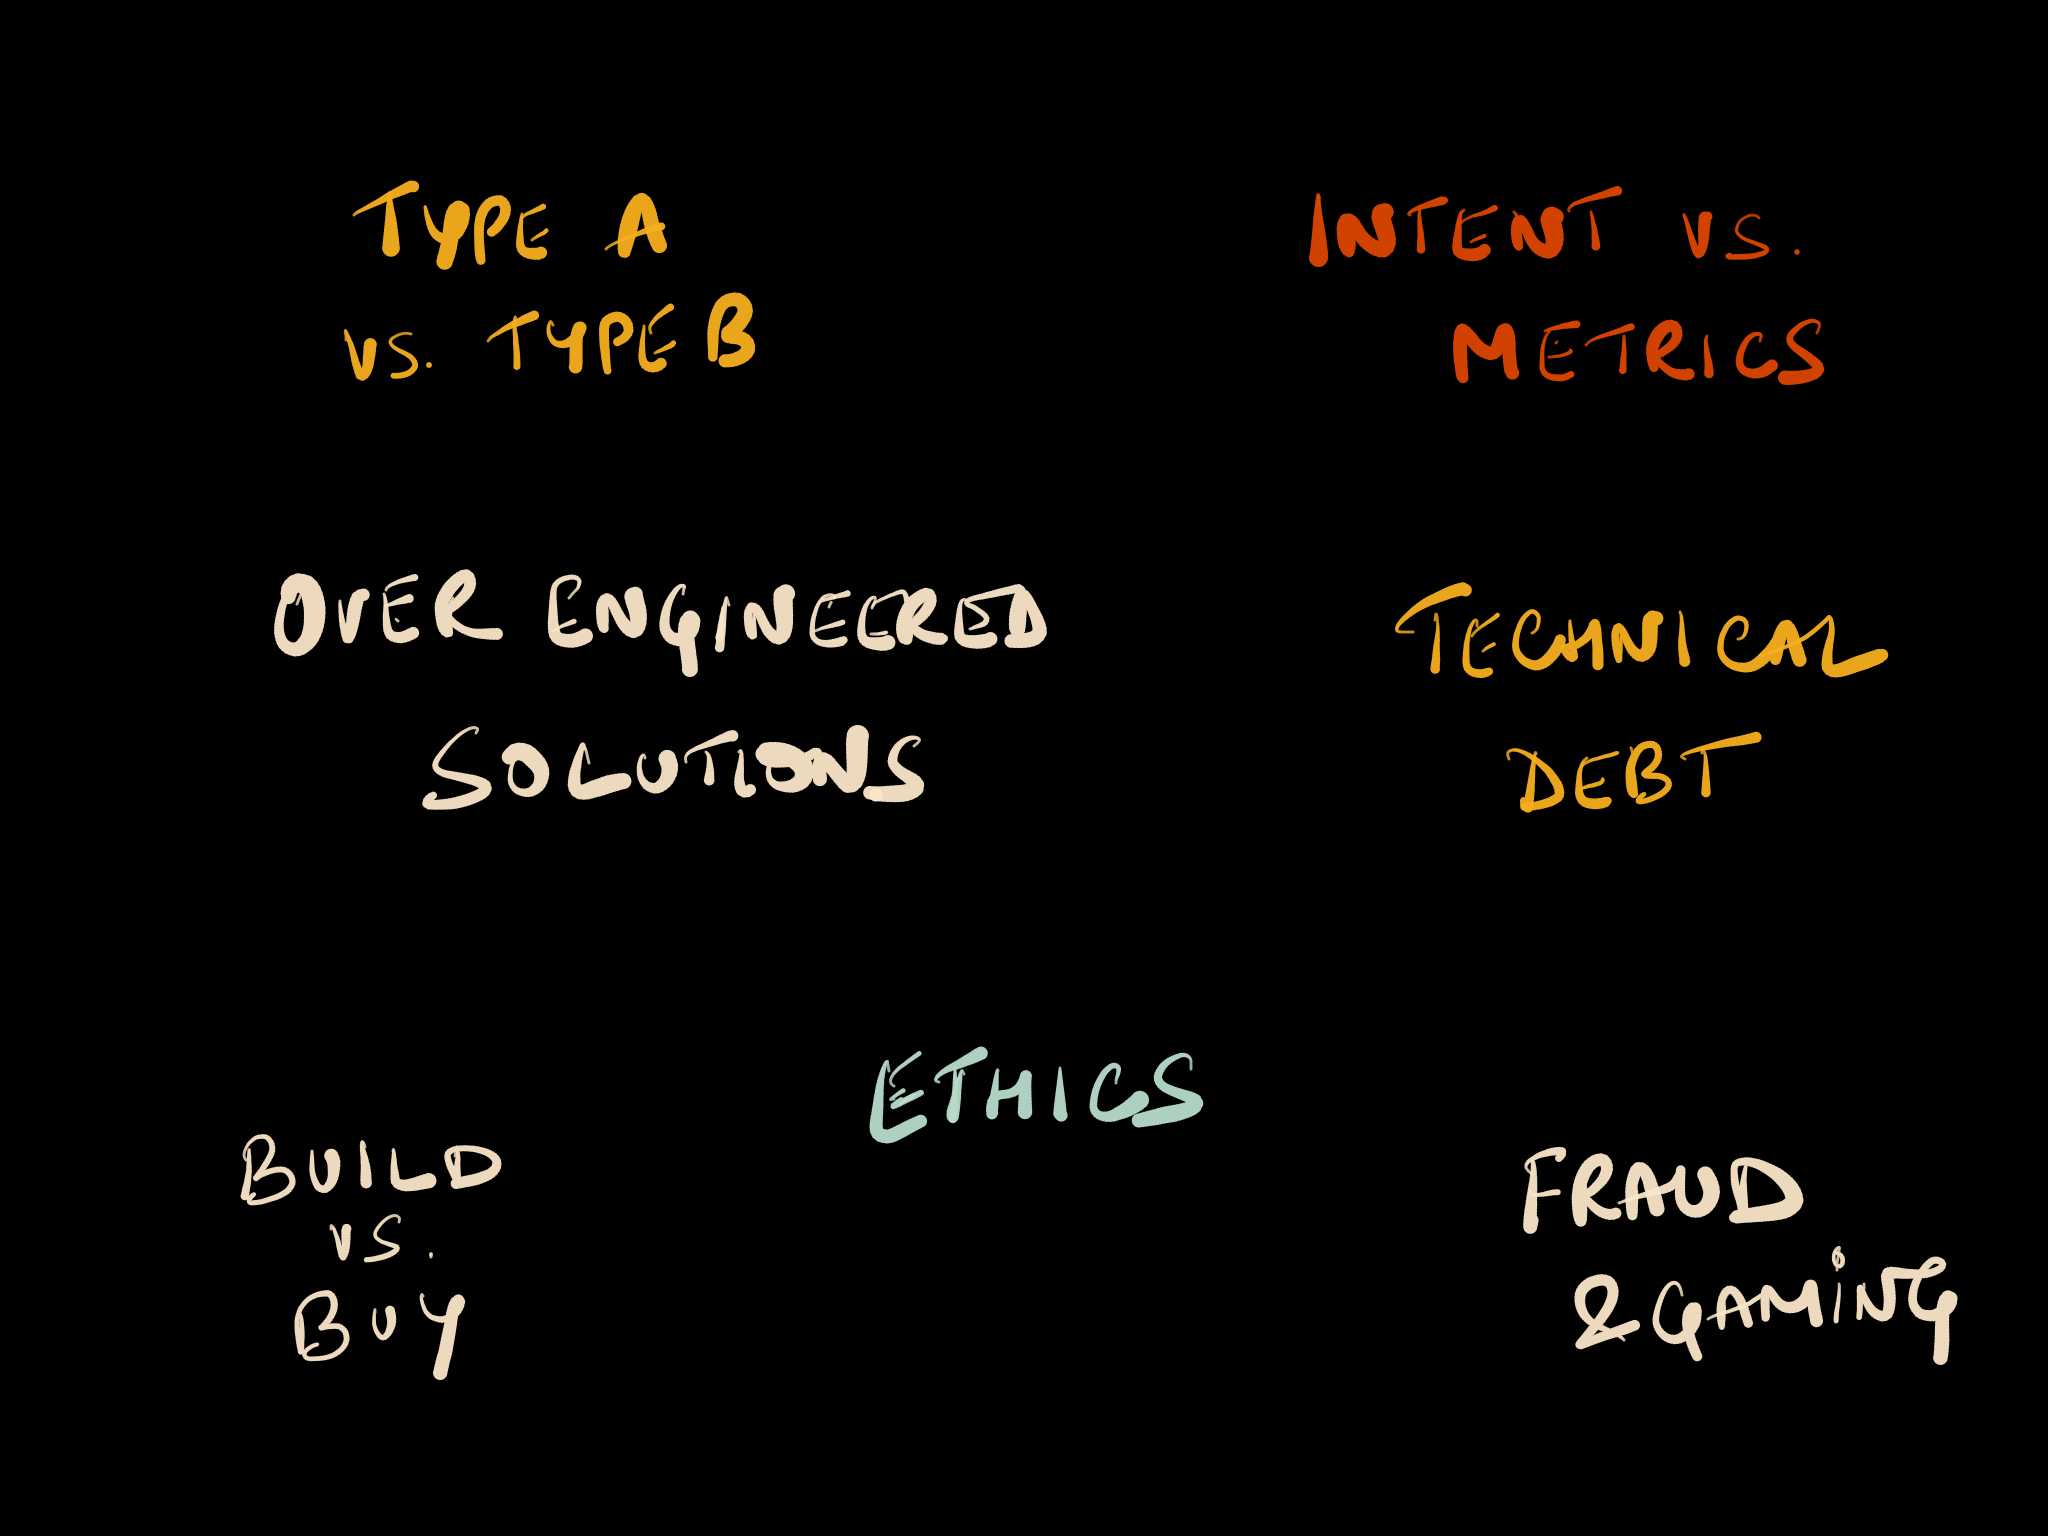 TYPE A
VS. TYPE B
INTENT VS.
METRICS
OVER ENGINEERED
SOLUTIONS
TECHNICAL
DEBT
ETHICS
BUILD
VS.
BUY
FRAUD
& GAMING